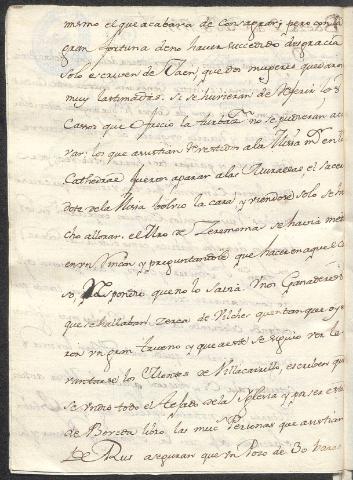 mismo el que acabava de Consagrar; pero con la
gran fortuna de no haver succedido desgracia
solo escriven de Jaen, que dos mugeres quedaron
muy lastimadas. Si se huvieran de referir los
Casos que ofrecio la turbazn. no se pudieran aca
var, los que asistian revestidos a la Misa en la
Cathedral fueron a parar a las el Sacer
dote de la Misa bolvio la cara y viendose solo se hi
cho a llorar. el Mro. de Zeremonia se havia metido
en un Rincon y preguntandole que hacia en aquel
Respondio que no lo savia. Unos Ganaderos
que se hallaban zerca de Vilches quentan que oye
ron un gran trueno y que a este se siguio ver le
vantarse los Montes de Villacarrillo, escriben que
se undio todo el tejado de la Yglesia y
de Boveda libro las muchas Personas que asistian
De Rus aseguran que un Pozo de 30 baras